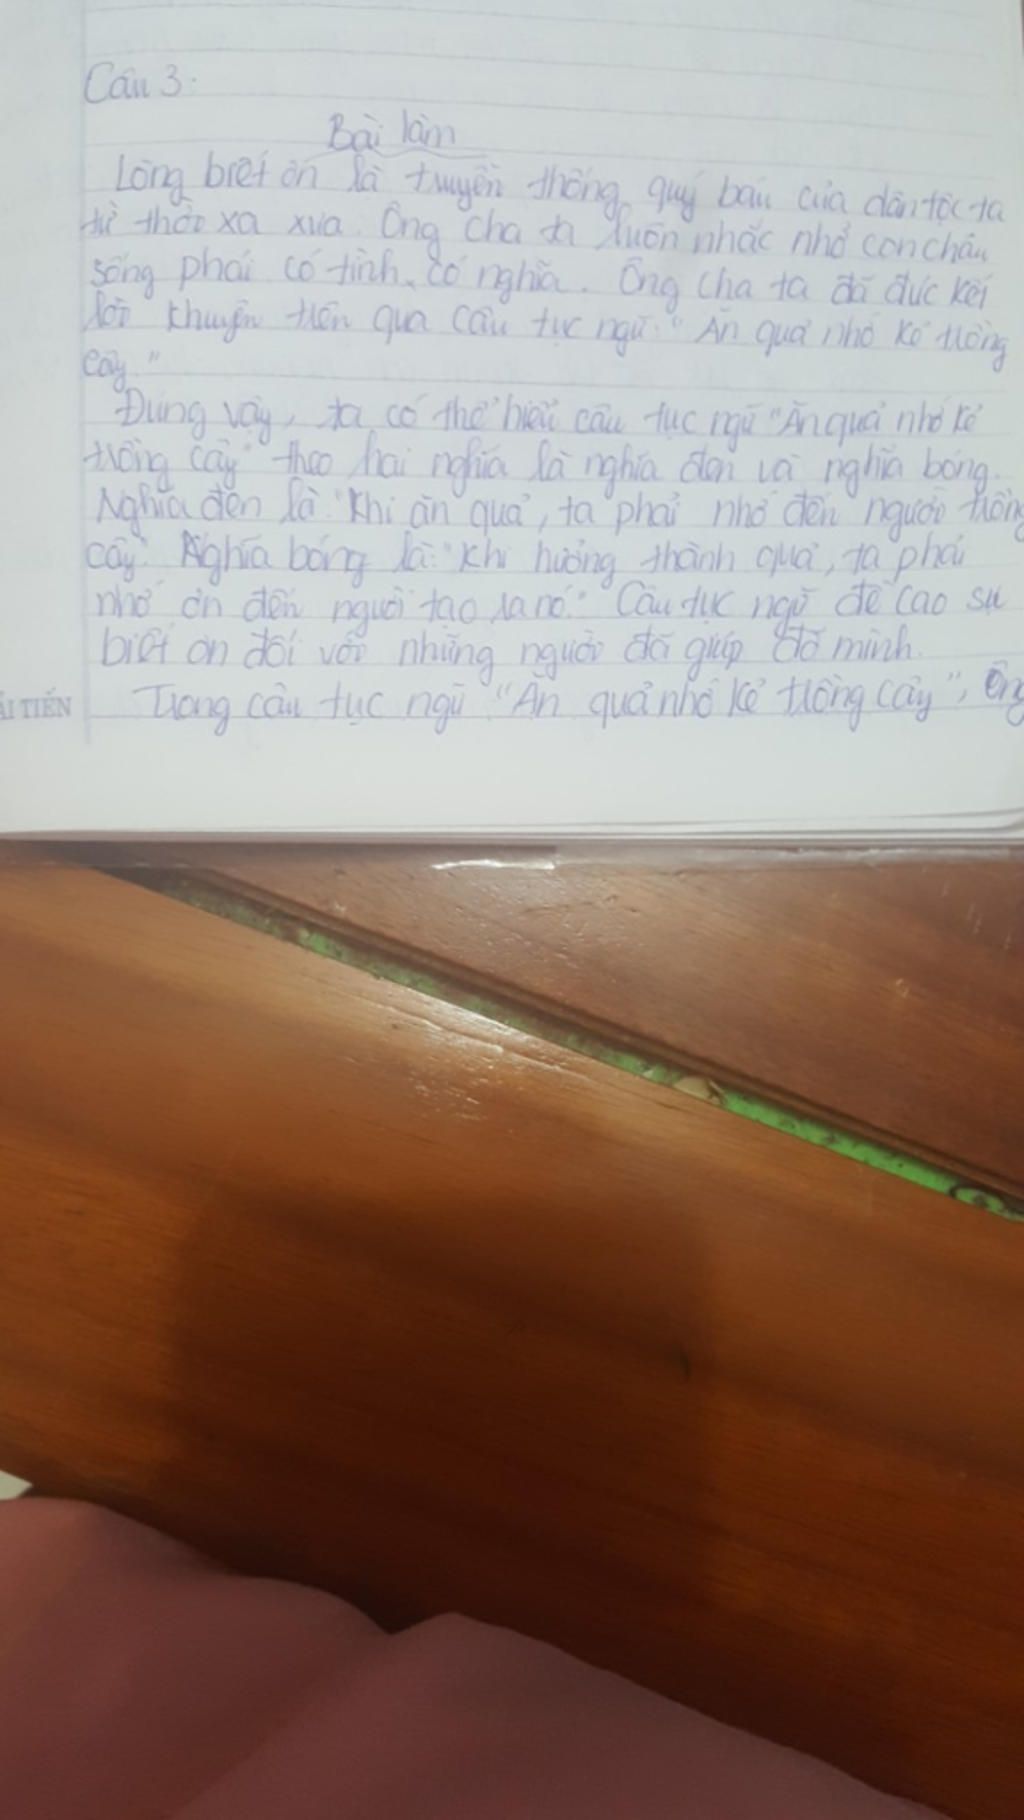 Câu 3.
Bài làm
Lòng biết ơn là truyền thống quý báu của dân tộc ta
từ thời xa xưa. Ông cha ta luôn nhắc nhở con cháu
sống phải có tình, có nghĩa. Ông cha ta đã đúc kết
lời khuyên trên qua câu tục ngữ: "Ăn quả nhớ kẻ trồng
cây"
Đúng vậy, ta có thể hiểu câu tục ngữ "Ăn quả nhớ kẻ
trồng cây" theo hai nghĩa là nghĩa đen và nghĩa bóng.
Nghĩa đen là: "Khi ăn quả, ta phải nhớ đến người trồng
cây". Nghĩa bóng là: "Khi hưởng thành quả, ta phải
nhớ ơn đến người tạo ra nó." Câu tục ngữ đề cao sự
biết ơn đối với những người đã giúp đỡ mình.
Trong câu tục ngữ "Ăn quả nhớ kẻ trồng cây", Ông
TIẾN